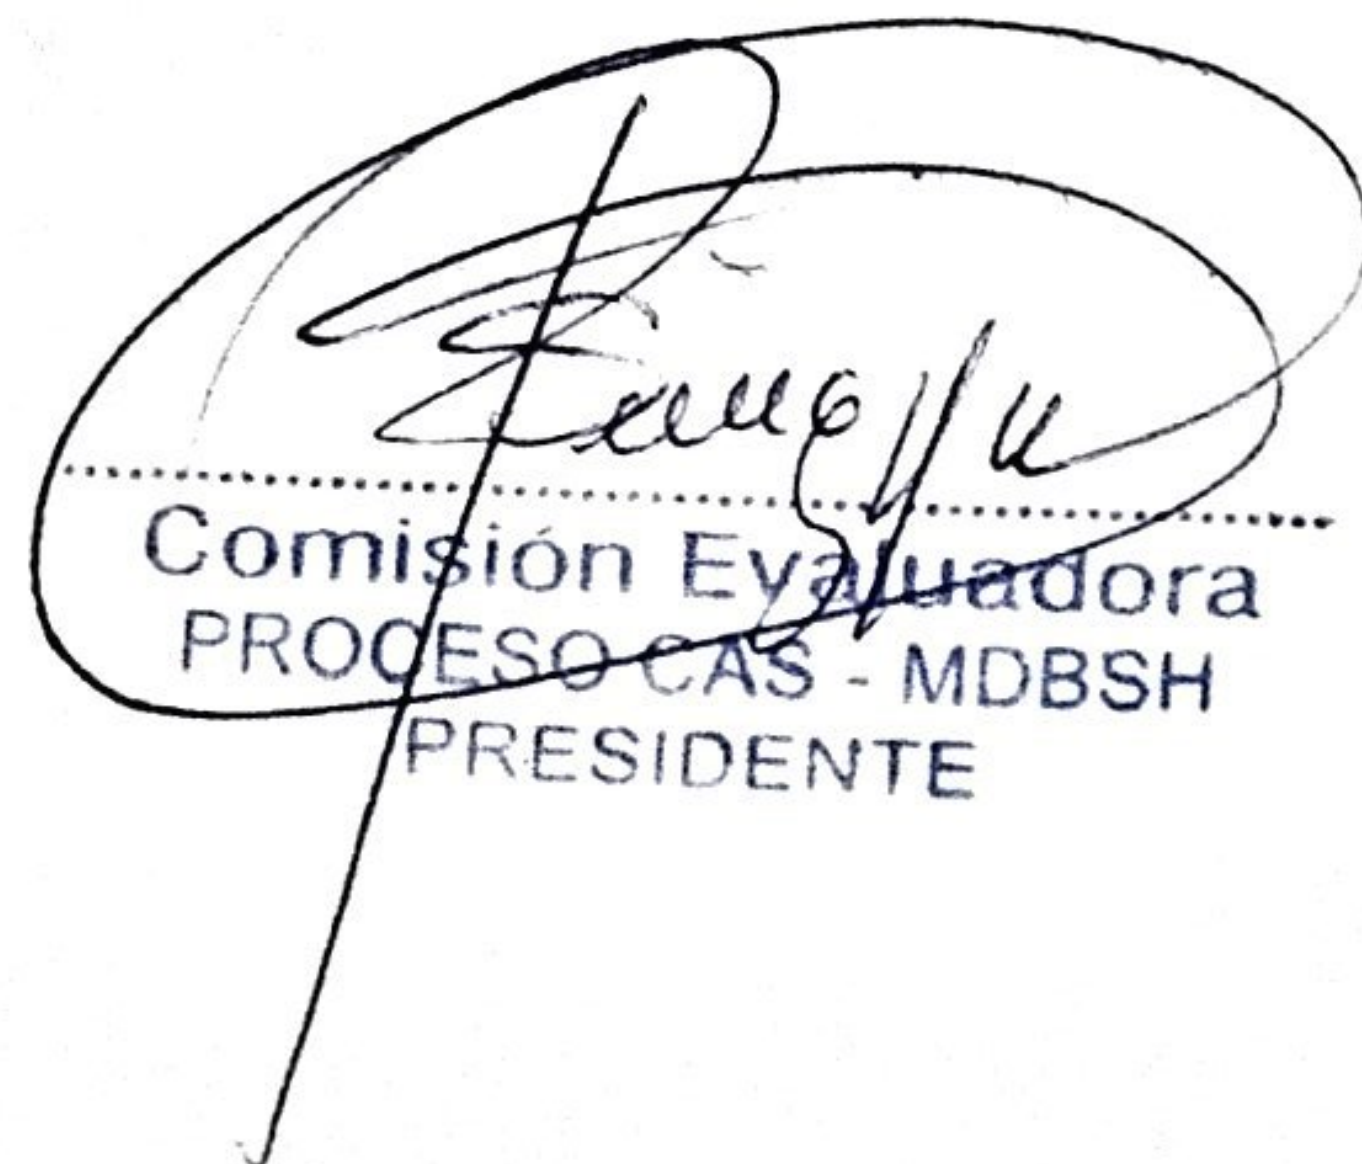 Comisión Evaluadora
PROCESO CAS - MDBSH
PRESIDENTE